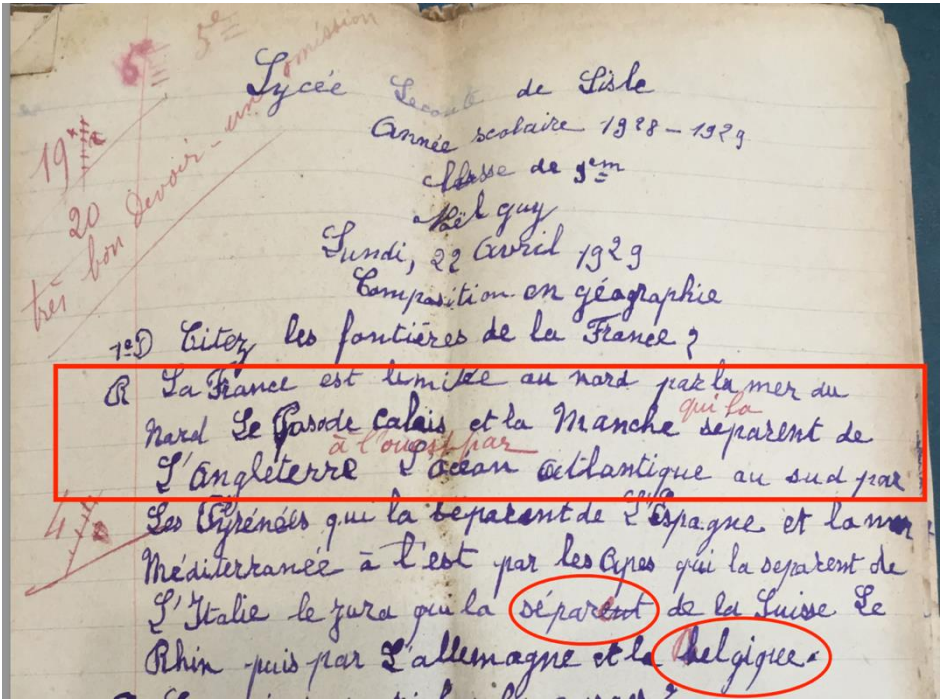 5
5e
19
20
très bon devoir - une omission
Lycée Leconte de Lisle
Année scolaire 1928-1929
Classe de 9em
Noël Guy
Lundi, 22 Avril 1929
Composition en géographie
1º D Citez les fontières de la France ?
R La France est limitée au nord par la mer du
Nord Le Pasode Calais et la Manche qui la séparent de
L'Angleterre à l'ouest par L'océan atlantique au sud par
Les Pyrénées qui la separent de L'Espagne et la mer
Méditerranée à l'est par les Apes qui la separent de
L'Italie le jura qui la séparent de la Suisse Le
Rhin puis par L'allemagne et la belgique.
4